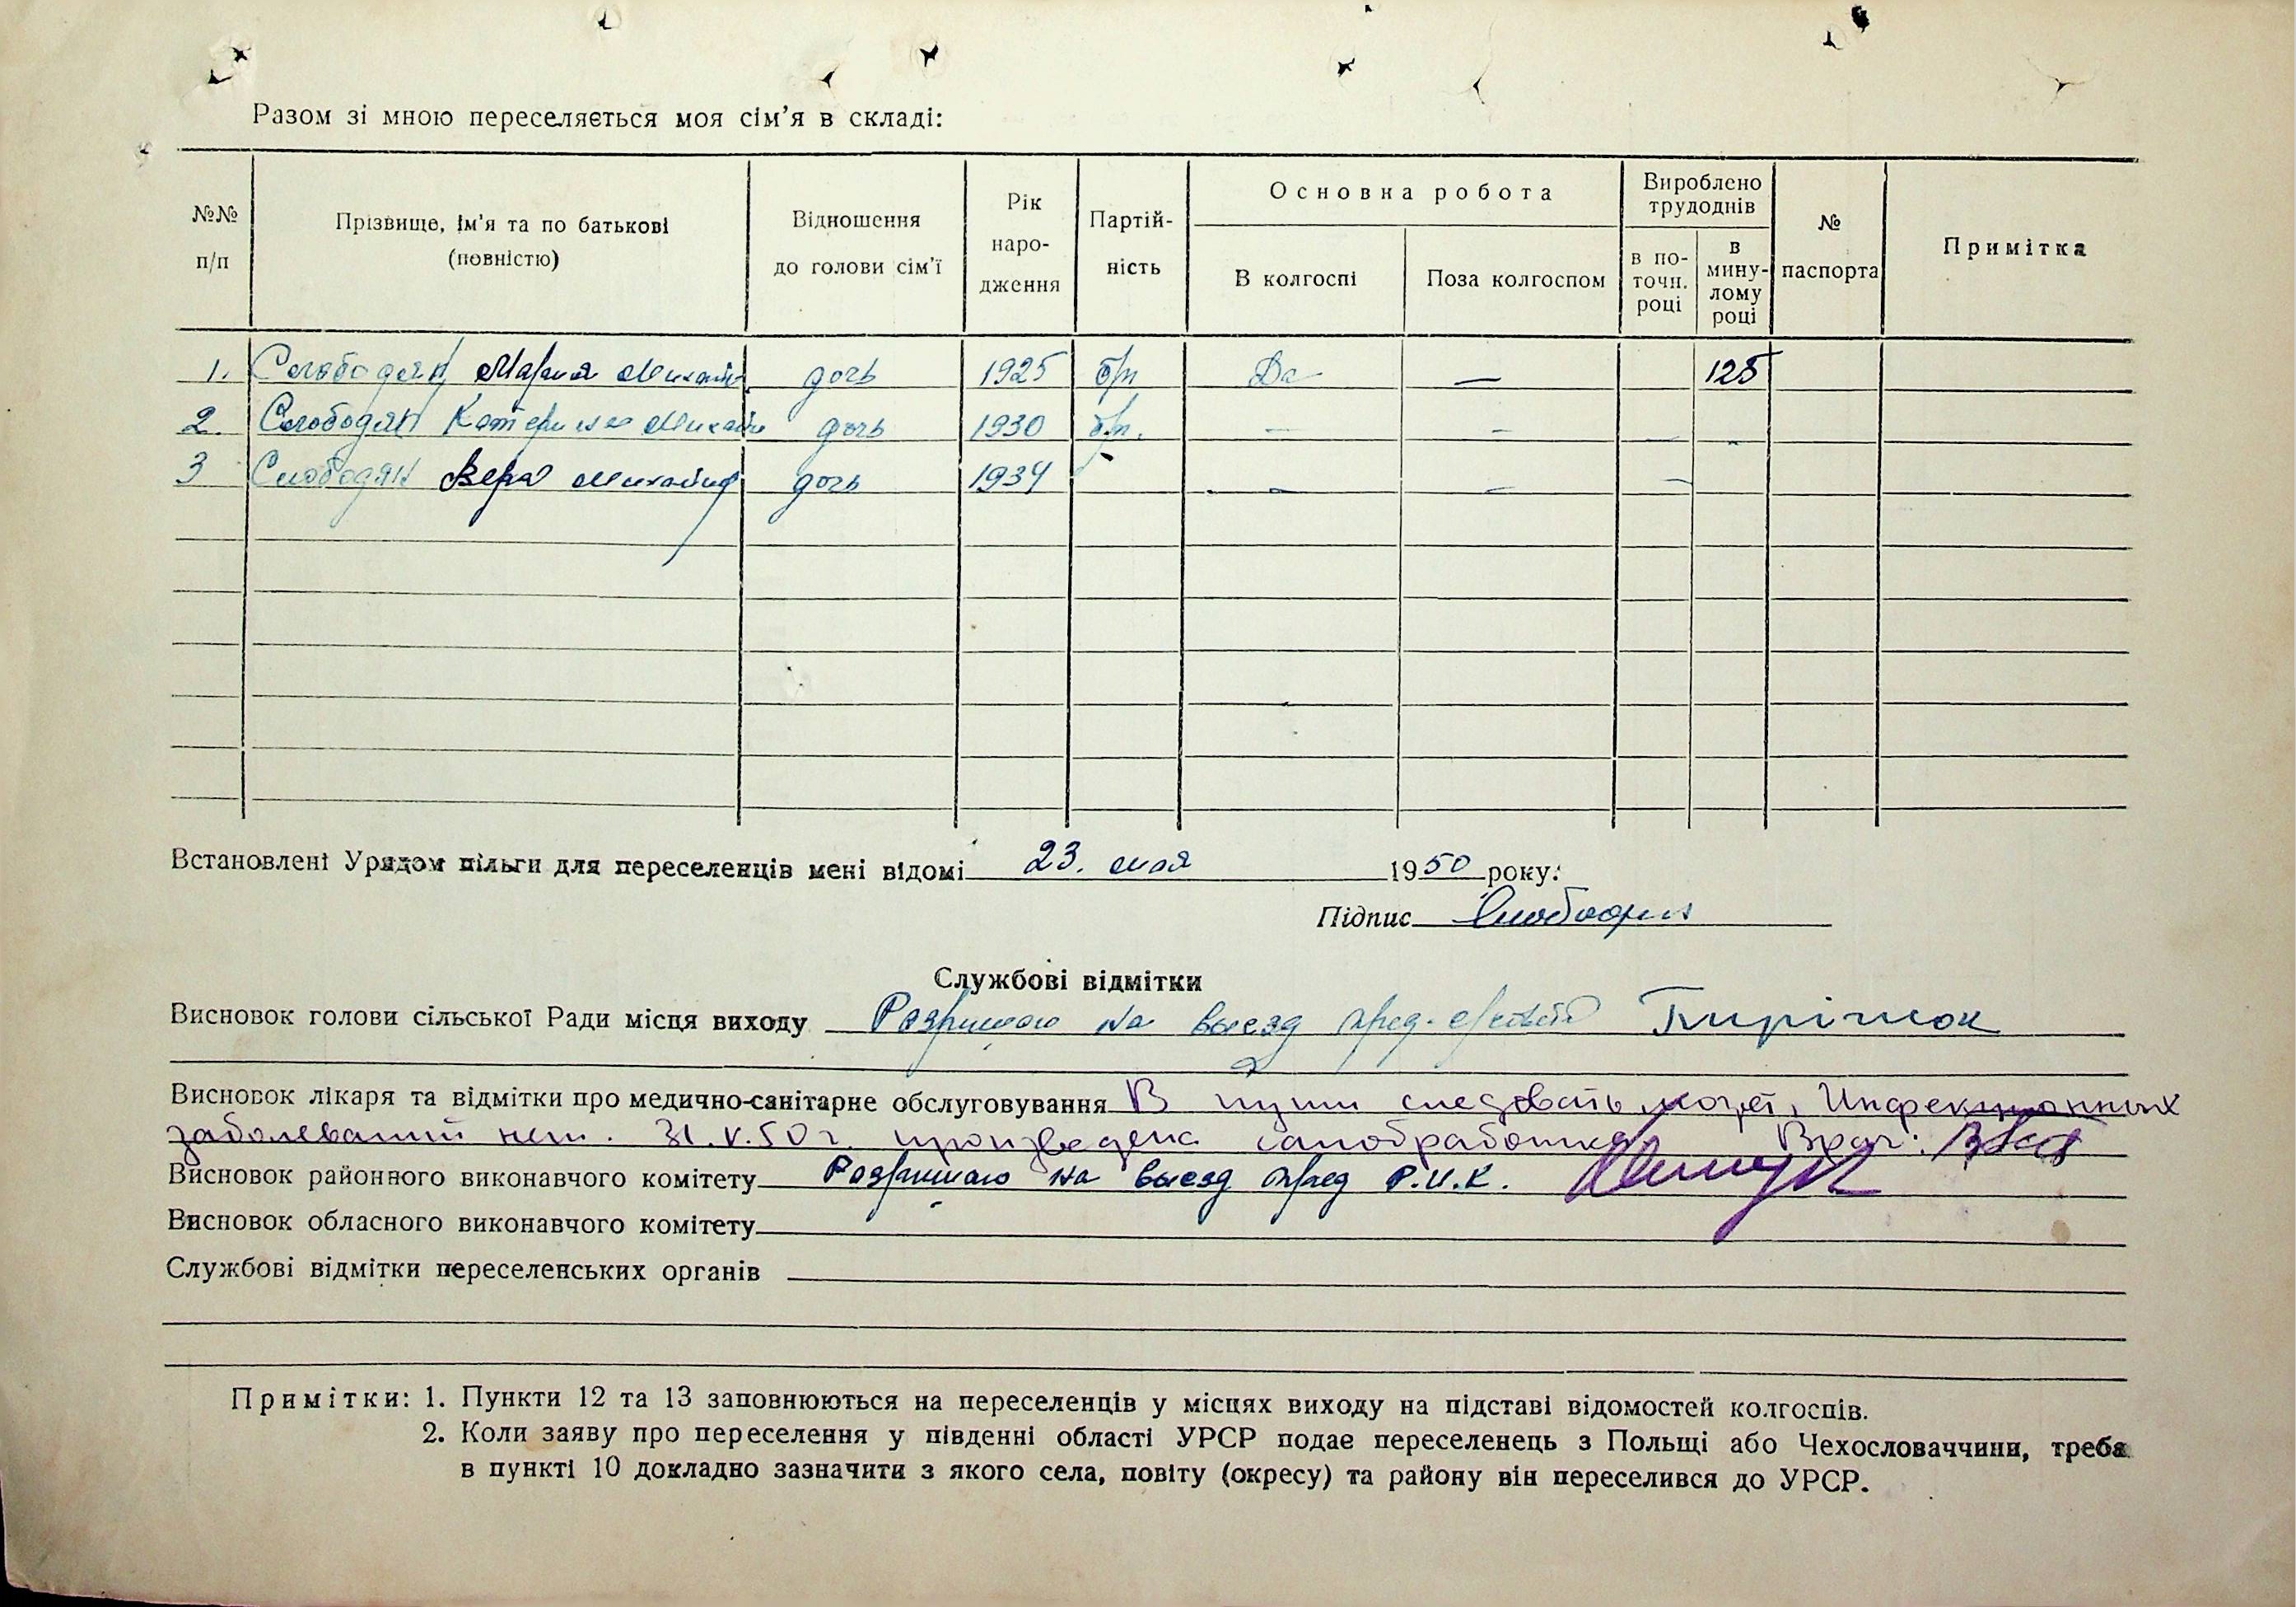 Разом зі мною переселяється моя сім'я в складі:
№№ п/п
Прізвище, ім'я та по батькові (повністю)
Відношення до голови сім'ї
Рік наро-дження
Партій-ність
Основна робота
В колгоспі
Поза колгоспом
Вироблено трудоднів
в по-точн. році
в мину-лому році
№ паспорта
Примітка
1. Слободян Мария Михайл дочь 1925 б/п Да — 125
2. Слободян Катерина Михайл дочь 1930 б/п. — — — -
3 Слободян Вера Михайлов дочь 1934 - — — —
Встановлені Урядом пільги для переселенців мені відомі 23. мая 1950 року:
Підпис Слободян
Службові відмітки
Висновок голови сільської Ради місця виходу Разришаю на выезд пред.
Висновок лікаря та відмітки про медично-санітарне обслуговування В пути следовать может, Инфекционных
заболеваний нет. 31.V.50 г. произведена санобработка Врач:
Висновок районного виконавчого комітету Разришаю на выезд пред Р.И.К.
Висновок обласного виконавчого комітету
Службові відмітки переселенських органів
Примітки: 1. Пункти 12 та 13 заповнюються на переселенців у місцях виходу на підставі відомостей колгоспів.
2. Коли заяву про переселення у південні області УРСР подає переселенець з Польщі або Чехословаччини, треба
в пункті 10 докладно зазначити з якого села, повіту (окресу) та району він переселився до УРСР.